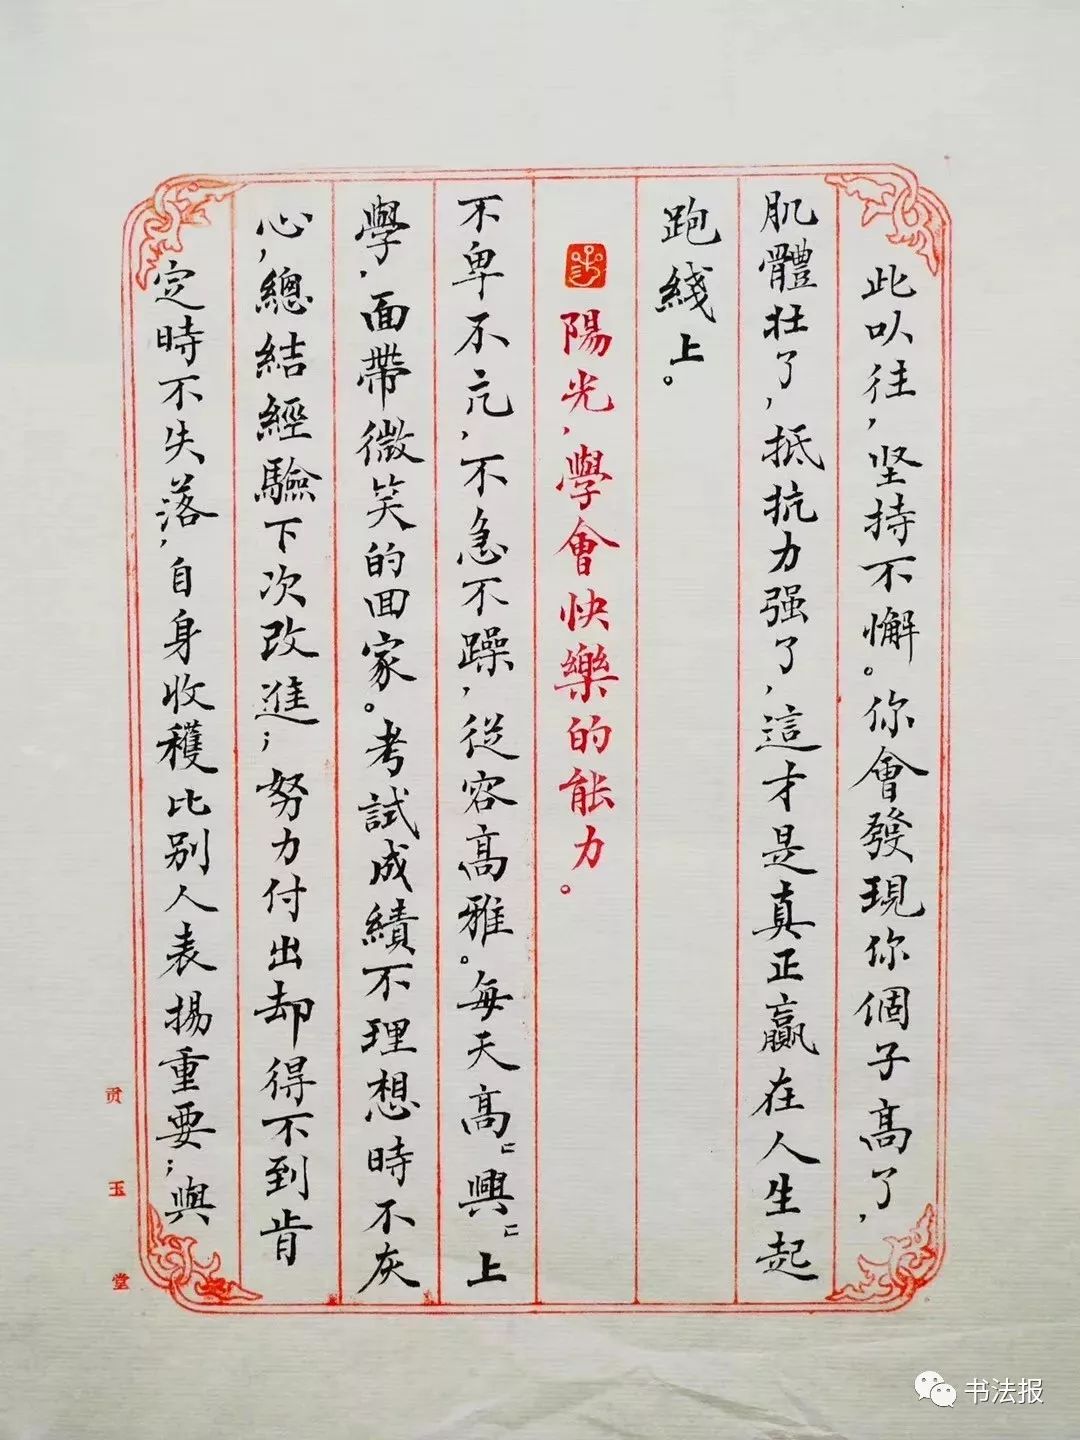 此以往，坚持不懈。你會發現你個子高了，
肌體壮了，抵抗力强了，這才是真正贏在人生起
跑綫上。
陽光，學會快樂的能力。
不卑不亢，不急不躁，從容高雅。每天高〻興〻上
學，面帶微笑的回家。考試成績不理想時不灰
心，總結經驗下次改進；努力付出却得不到肯
定時不失落，自身收穫比别人表揚重要；與
贡玉堂
书法报